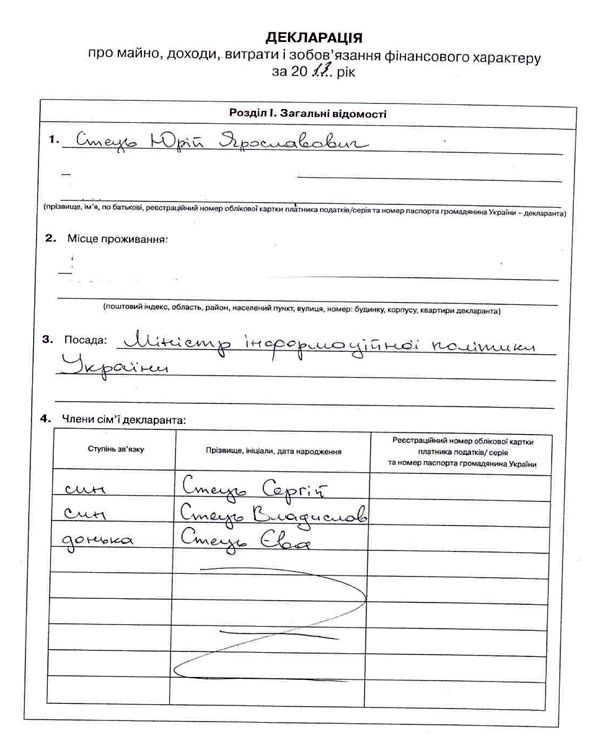 ДЕКЛАРАЦІЯ
про майно, доходи, витрати і зобов'язання фінансового характеру
за 20 рік
Розділ I. Загальні відомості
1. Стець Юрій Ярославович
(прізвище, ім'я, по батькові, реєстраційний номер облікової картки платника податків/серія та номер паспорта громадянина України – декларанта)
2. Місце проживання:
(поштовий індекс, область, район, населений пункт, вулиця, номер: будинку, корпусу, квартири декларанта)
3. Посада: Міністр інформаційної політики
України
4. Члени сім'ї декларанта:
Ступінь зв'язку
Прізвище, ініціали, дата народження
Реєстраційний номер облікової картки
платника податків/ серія
та номер паспорта громадянина України
син Стець Сергій
син Стець Владислав
донька Стець Єва